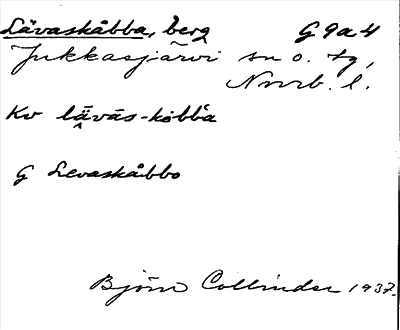 Lävaskåbba, berg G 9a4
Jukkasjärvi sn o. tg,
Norrb. l.
Kv lä̬vás-kòbb̀a
G Levaskåbbo
Björn Collinder 1937.